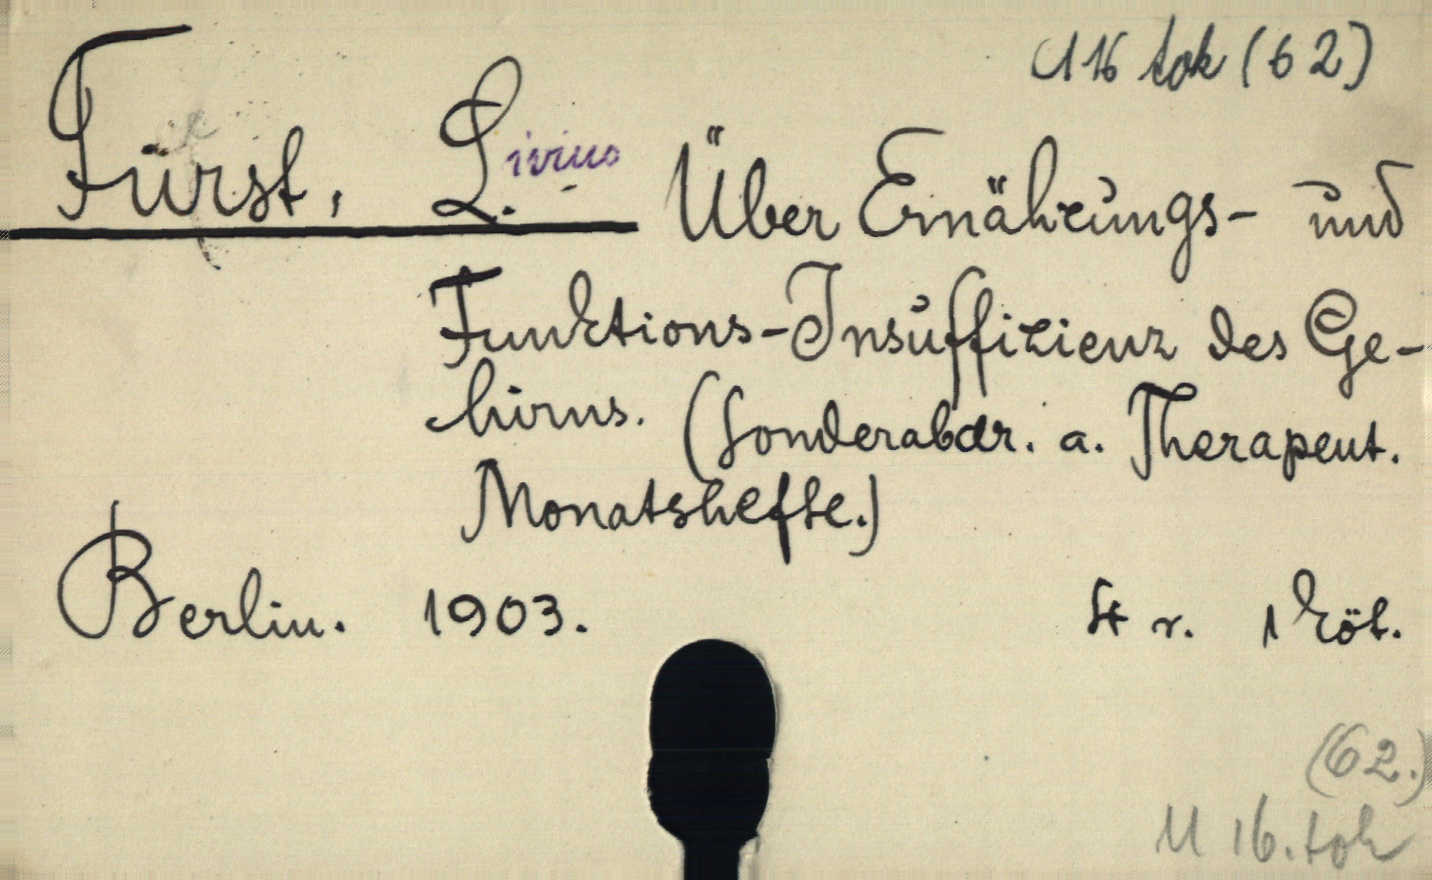 U 16 tok (62)
Fürst, Livius Über Ernährungs- und
Funktions-Insuffizienz des Ge-
hirns. (Sonderabdr. a. Therapeut.
Monatshefte.)
Berlin. 1903. 4 r. 1 köt.
(62.)
U 16. tok